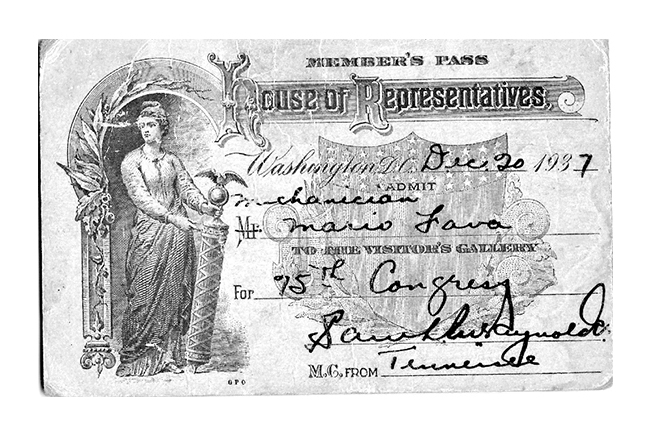 MEMBER'S PASS
House of Representatives,
Washington, D.C. Dec. 20 1937
ADMIT
Mechanician
Mr. Mario Fava
TO THE VISITOR'S GALLERY
For 75th Congress
Sam D. McReynolds
M.C. FROM Tennessee
GPO